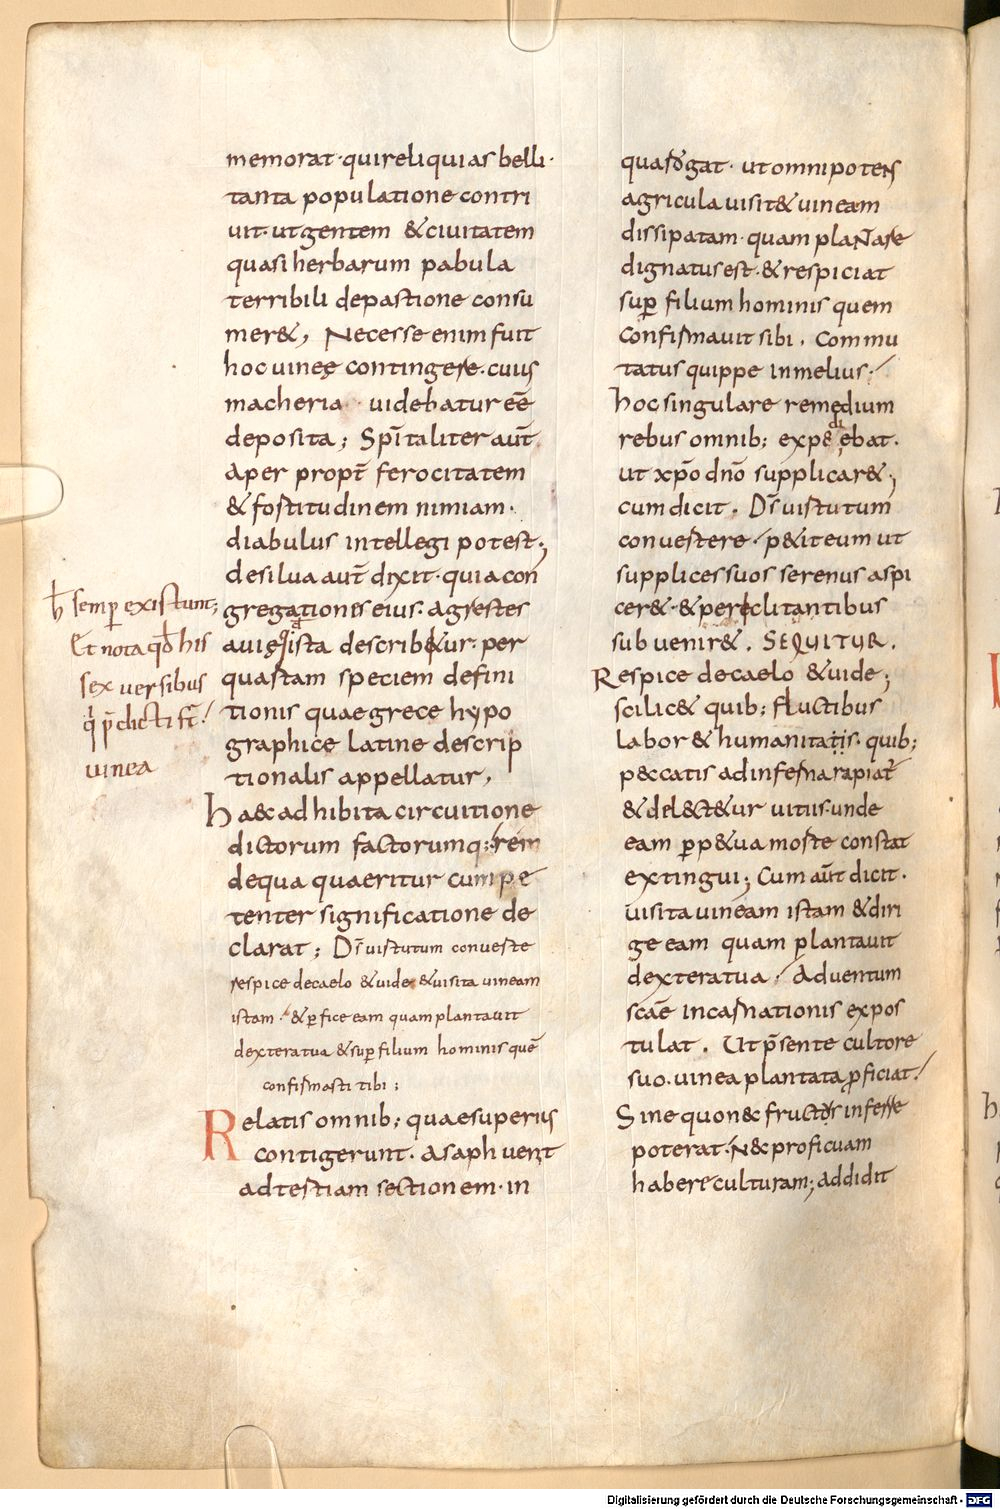 memorat· qui reliquias belli·
tanta populatione contri
uit· ut gentem & ciuitatem
quasi herbarum pabula
terribili depastione consu
mer&, Necesse enim fuit
hoc uineę contingere· cuius
macheria uidebatur eē
deposita; Sp̄italiter aūt
aper propt̄ ferocitatem
& fortitudinem nimiam·
diabulus intellegi potest;
de silua aūt dixit· quia con
gregationes eius· agrestes
a
auię ista describ&ur· per
quartam speciem defini
tionis quae grece hypo
graphice latine descrip
tionalis appellatur,
Haec adhibita circuitione
dictorum factorumq; rem
de qua quaeritur cumpe
tenter significatione de
clarat; Ds̄ uirtutum conuerte
respice de caelo & uide & uisita uineam
istam· & p̲fice eam quam plantauit
dextera tua & sup̲ filium hominis quē
confirmasti tibi;
Relatis omnib; quae superius
contigerunt· asaph uenit
ad tertiam sectionem· in
ħ semp̲ existunt;
Et nota qđ his
sex uersibus
p̄dicti st̄
uinea
qua rogat· ut omnipotens
agricula uisit& uineam
dissipatam· quam plantare
dignatus est· & respiciat
sup̲ filium hominis quem
confirmauit sibi· Commu
tatus quippe in melius·
hoc singulare remędium
di
rebus omnib; exp&ebat·
ut xp̄o dn̄o supplicar&;
cum dicit· Ds̄ uirtutum
conuertere· p&it eum ut
supplices suos serenus aspi
cer&· & periclitantibus
subuenir&· SEQUITUR·
Respice de caelo & uide;
scilic& quib; fluctibus
labor& humanitatis· quib;
peccatis ad inferna rapiat̄
& del&c&ur uitiis· unde
eam p̲p&ua morte constat
extingui; Cum aūt dicit·
uisita uineam istam & diri
ge eam quam plantauit
dextera tua· Aduentum
scāe incarnationis expos
tulat· Ut p̄sente cultore
suo· uinea plantata p̲ficiat·
Sine quo nec fructus inferre
poterat· Nec proficuam
habere culturam; addidit
Digitalisierung gefördert durch die Deutsche Forschungsgemeinschaft - DFG